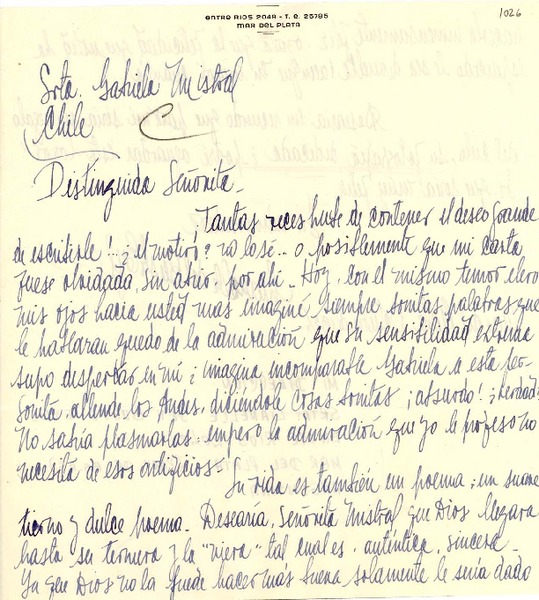 ENTRE RIOS 2048 - T. E. 25785
MAR DEL PLATA
1026
Srta. Gabriela Mistral
Chile
Distinguida Señorita -
Tantas veces hube de contener el deseo grande
de escribirle! ¿el motivo? no lo sé... o posiblemente que mi carta
fuese olvidada, sin abrir, por ahí - Hoy, con el mismo temor elevo
mis ojos hacia usted mas imaginé siempre bonitas palabras que
le hablaran quedo de la admiración que su sensibilidad extrema
supo despertar en mí ¡imagina incomparable Gabriela a esta per-
sonita, allende los Andes, diciéndole cosas bonitas ¡absurdo! ¿verdad?
No sabría plasmarlas: empero la admiración que yo le profeso no
necesita de esos artificios -
Su vida es también un poema; un suave
tierno y dulce poema - Desearía, Señorita Mistral que Dios llegara
hasta su ternura y la "viera" tal cual es, auténtica, sincera -
Ya que Dios no la puede hacer más buena solamente le sería dado